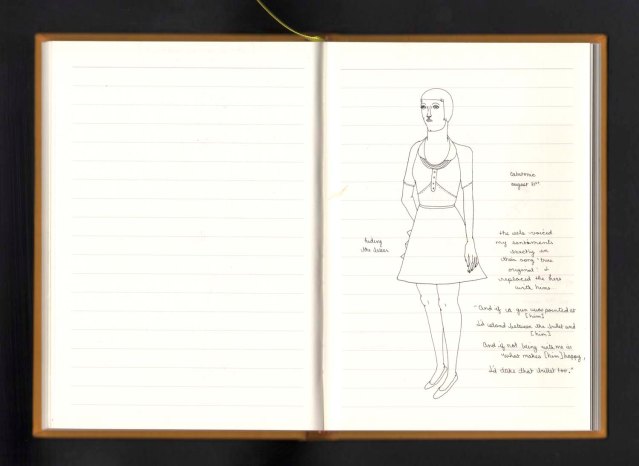 august
the eels voiced
my sentiments
exactly in
their song 'true
original'. i
replaced the hers
with hims.
hiding
the letter
"And if a gun was pointed at
[him]
I'd stand between the bullet and
[him]
And if not being with me is
what makes [him] happy,
I'd take that bullet too."